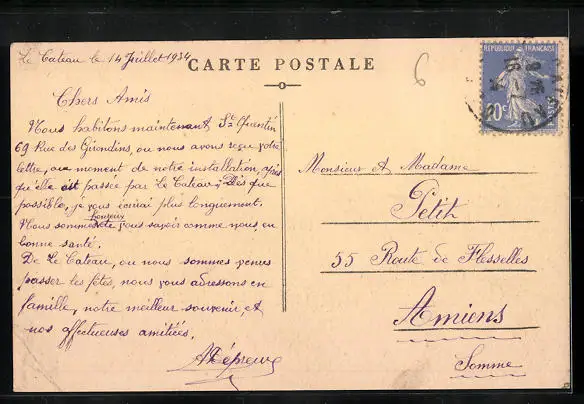 Le Cateau le 14 Juillet 1934
CARTE POSTALE
6
REPUBLIQUE FRANÇAISE
POSTES
Chers Amis
Nous habitons maintenant St Quentin
69 Rue des Girondins, ou nous avons reçu votre
lettre, au moment de notre installation, après
qu'elle est passée par Le Cateau, Dès que
possible, je vous écrirai plus longuement.
Nous sommes heureux de vous savoir comme nous en
bonne santé.
De Le Cateau, ou nous sommes venus
passer les fêtes, nous vous adressons en
famille, notre meilleur souvenir, et
nos affectueuses amitiées.
Monsieur et Madame
Petit
55 Route de Flesselles
Amiens
Somme